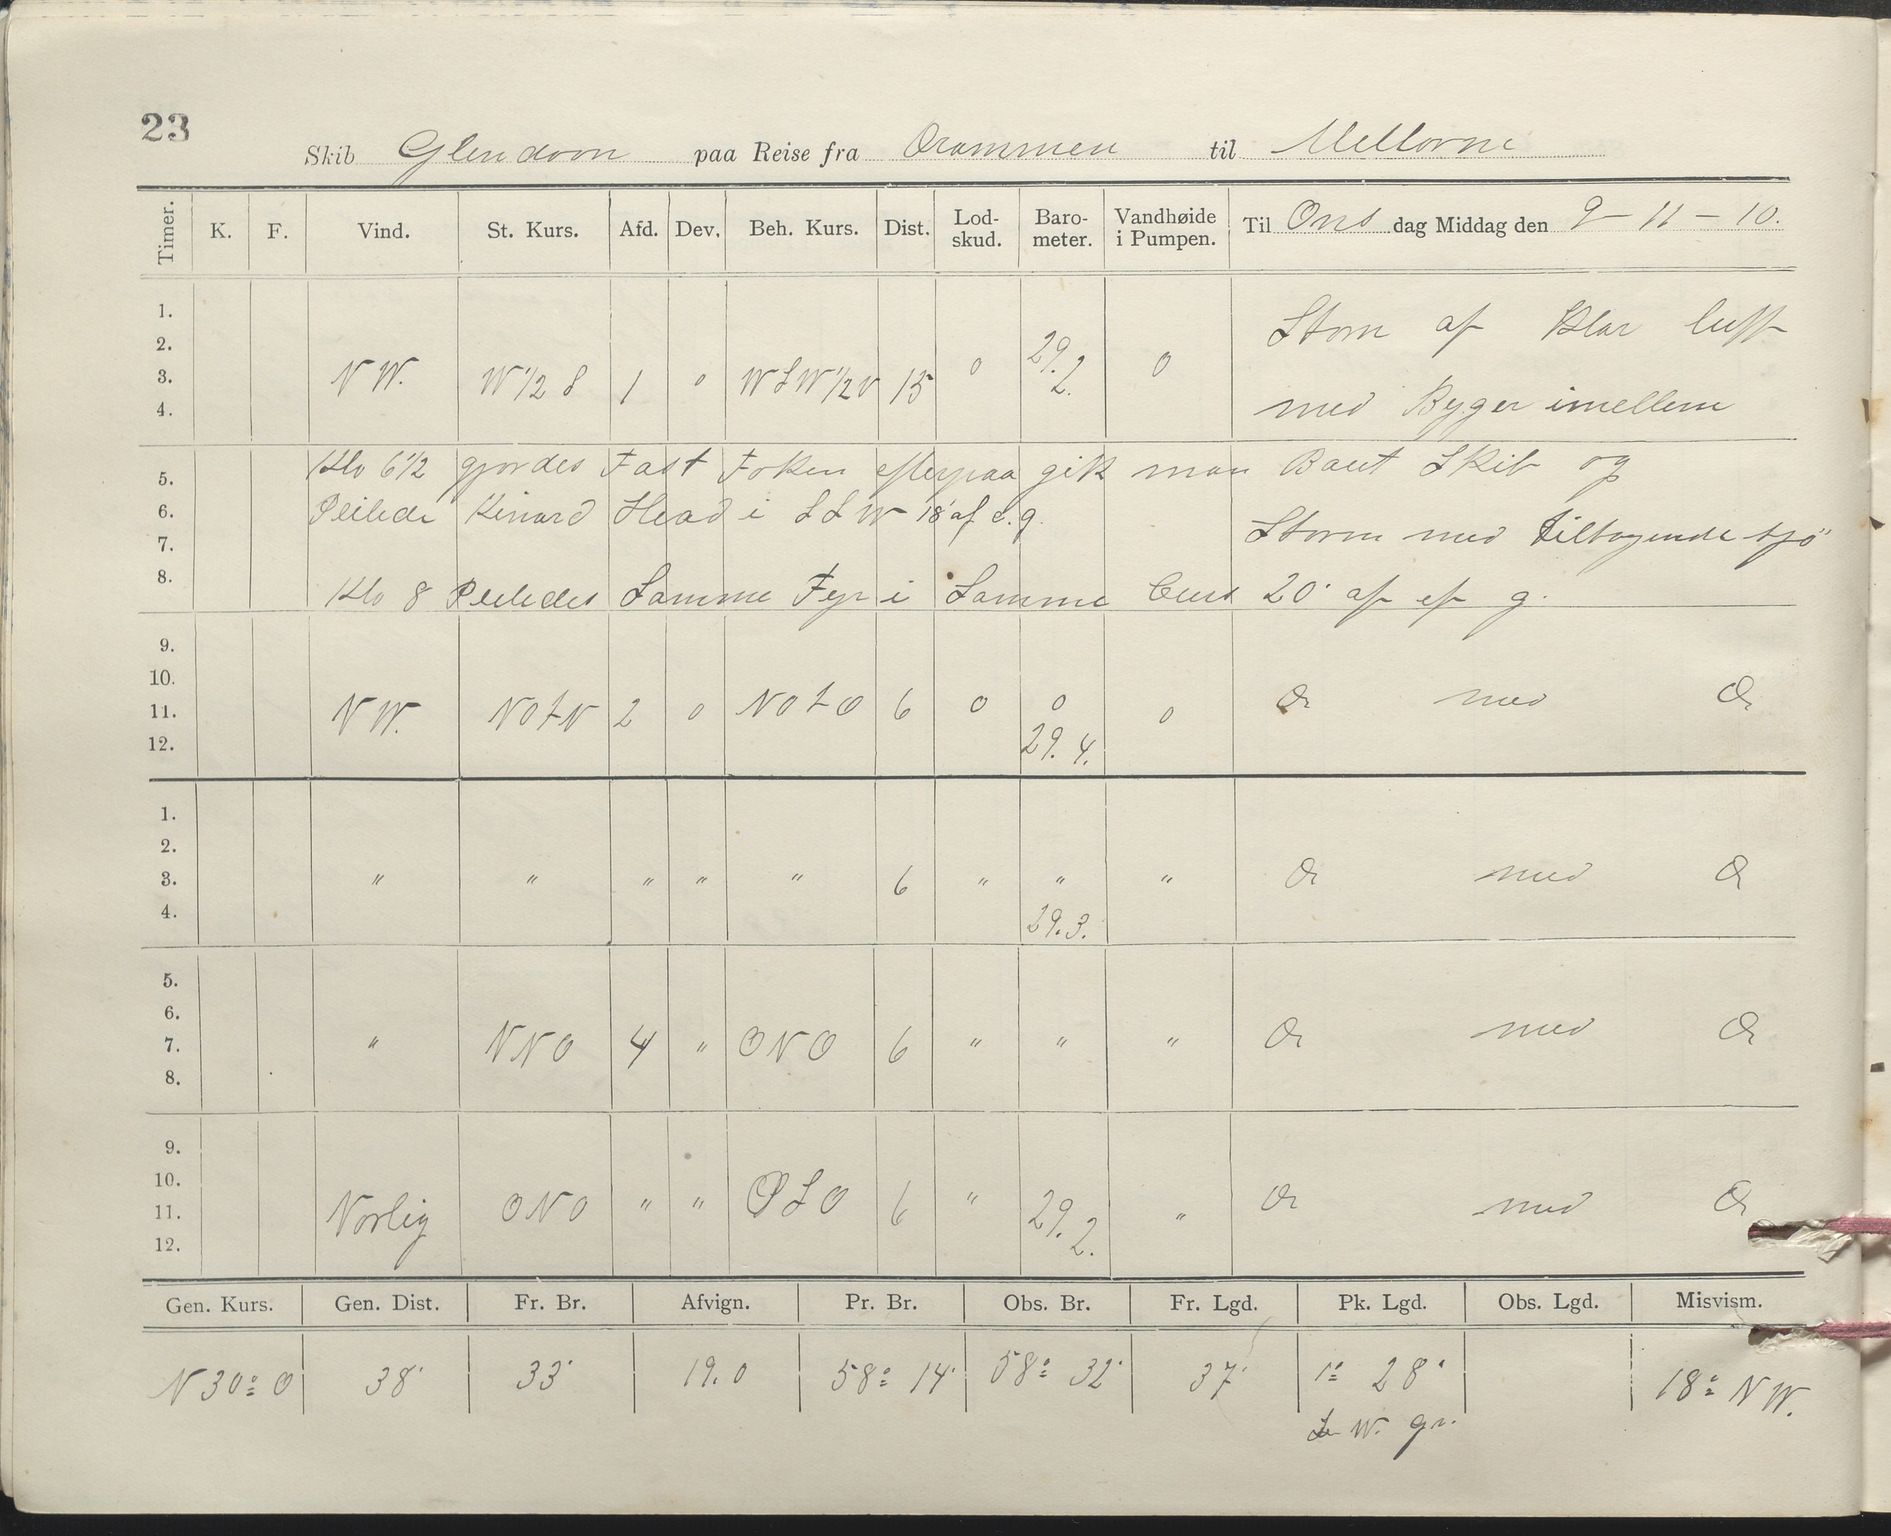 23
Skib Glendoon paa Reise fra Drammen til Melborne
Timer. K. F. Vind. St. Kurs. Afd. Dev. Beh. Kurs. Dist. Lod-skud. Baro-meter. Vandhøide i Pumpen. Til Ons dag Middag den 9-11-10.
1.
2.
3.
4.
NW. W 1/2 S 1 0 WSW 1/2 V 15 0 29.2. 0
Storm af Klar luft
med Byger imellem
5.
6.
7.
8.
Klo 6 1/2 gjordes Fast Foken efterpaa gik man Baut Skib og
Peilede Kinard Head i SSW 18' af d. g.
Storm med tiltagende sjö
Klo 8 Peiledes Samme Fyr i Samme Curs 20' af ef g.
9.
10.
11.
12.
NW. NOtN 2 0 NOtO 6 0 0 29.4. 0 Do med Do
1.
2.
3.
4.
" " " " " 6 " " 29.3. " Do med Do
5.
6.
7.
8.
" NNO 4 " ONO 6 " " " Do med Do
9.
10.
11.
12.
Norlig ONO " " OSO 6 " 29.2. " Do med Do
Gen. Kurs. Gen. Dist. Fr. Br. Afvign. Pr. Br. Obs. Br. Fr. Lgd. Pk. Lgd. Obs. Lgd. Misvism.
N 30° O 38' 33' 19.0 58° 14' 58° 32' 37' 1° 28' 18° NW.
W. gr.